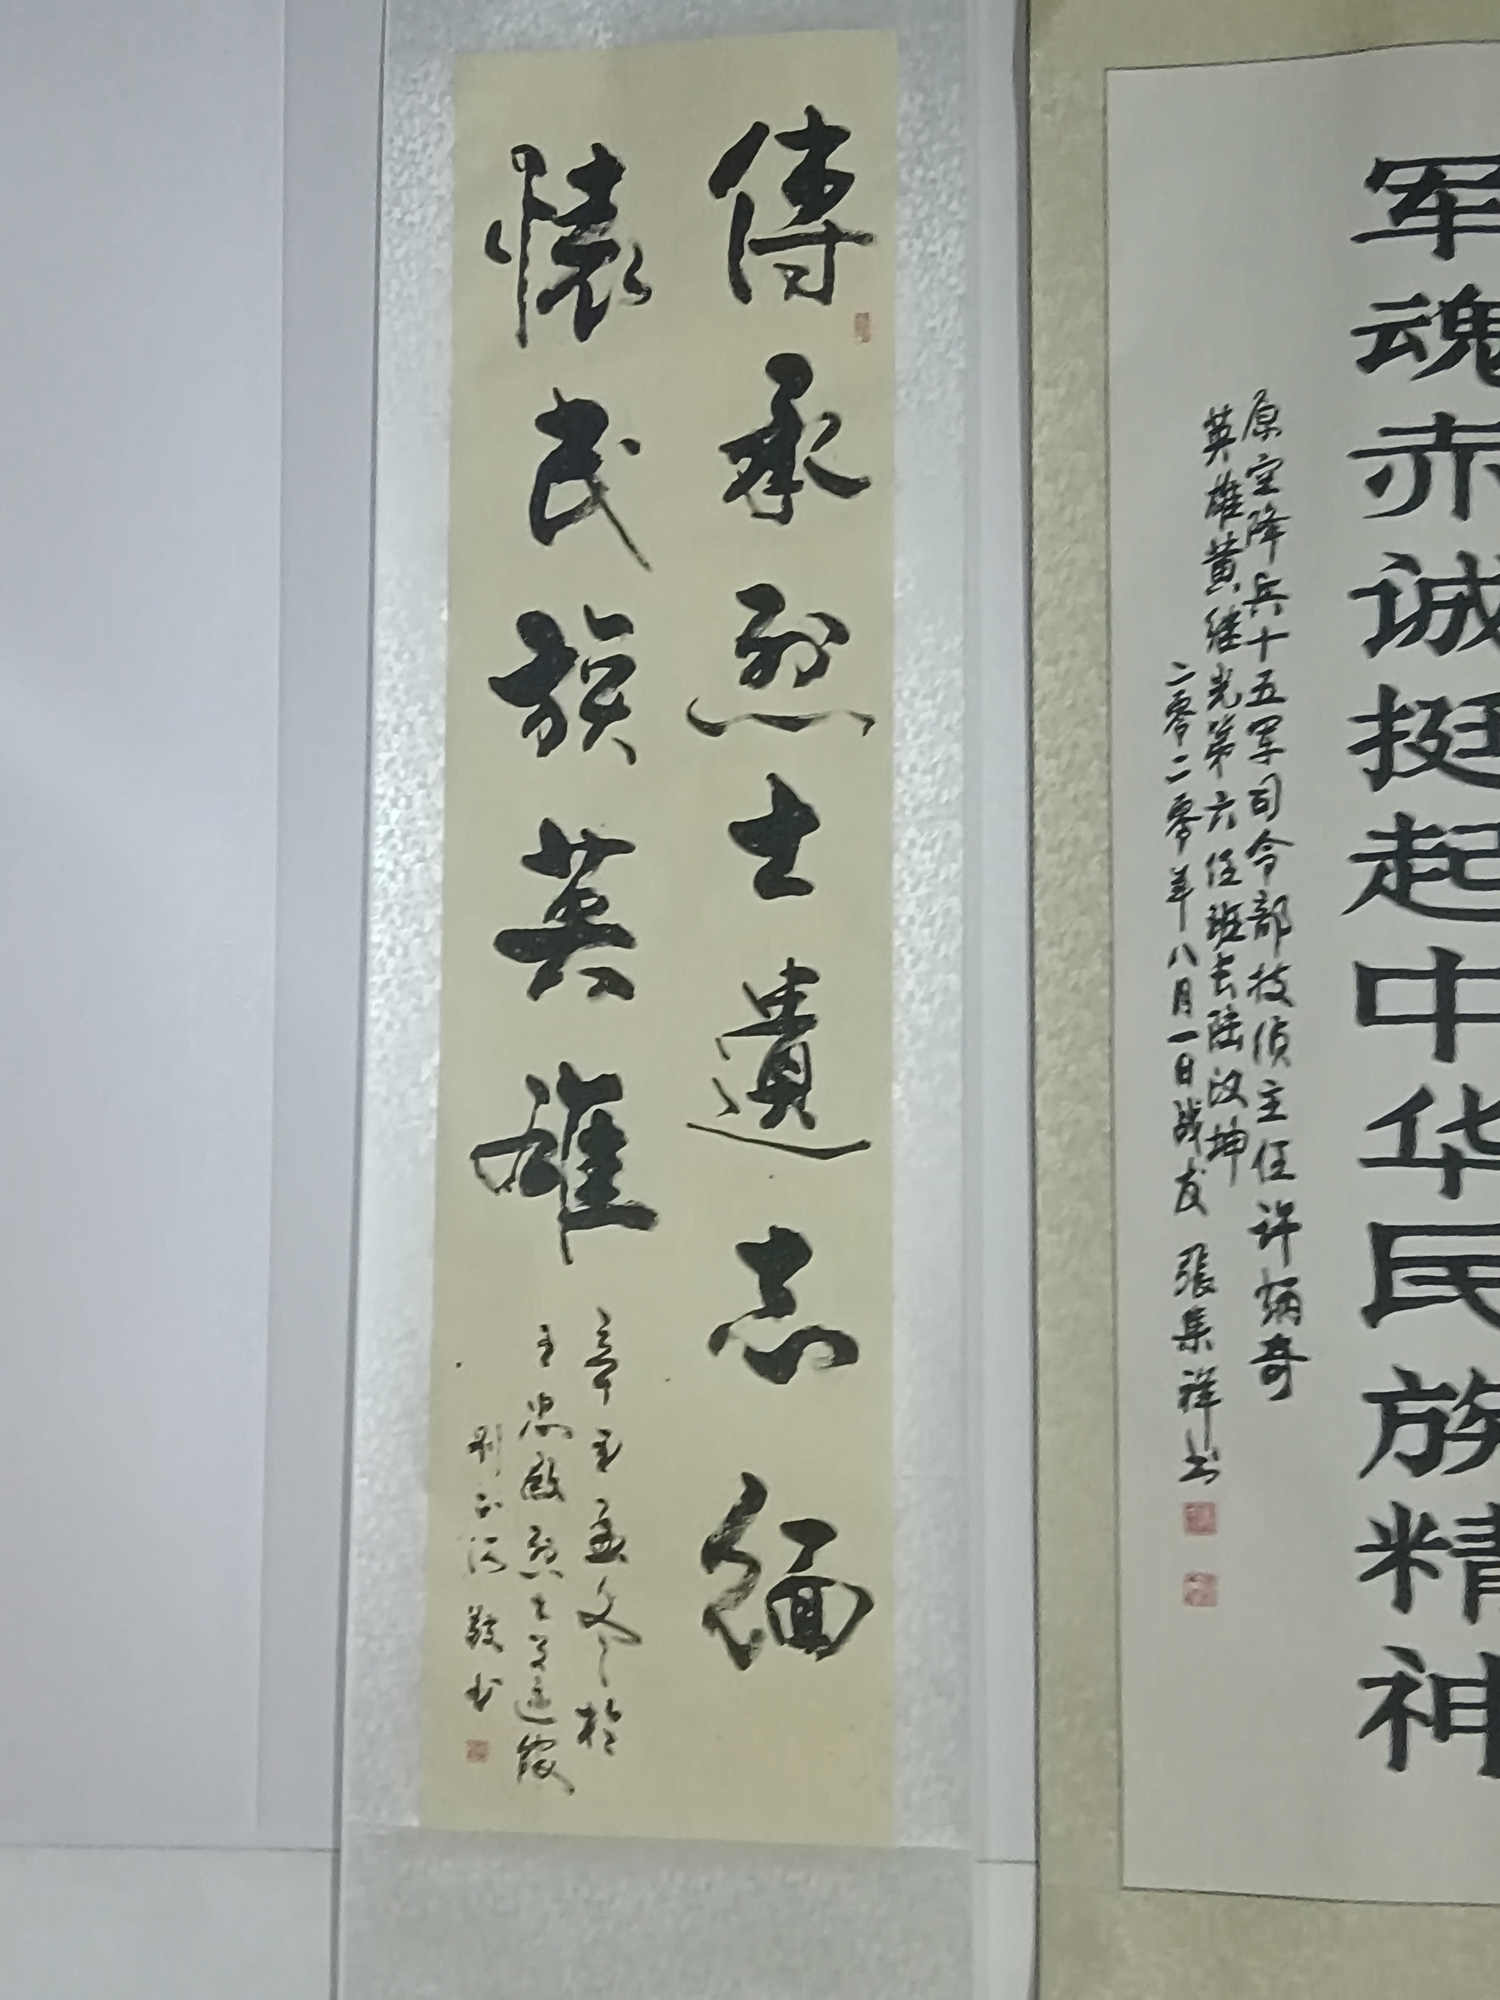 军魂赤诚挺起中华民族精神
原空降兵十五军司令部技侦主任许炳奇
英雄黄继光第六任班长陆汉坤
二零二零年八月一日战友 張集祥书
傳承烈士遺志緬
懷民族英雄
烈士
敬书